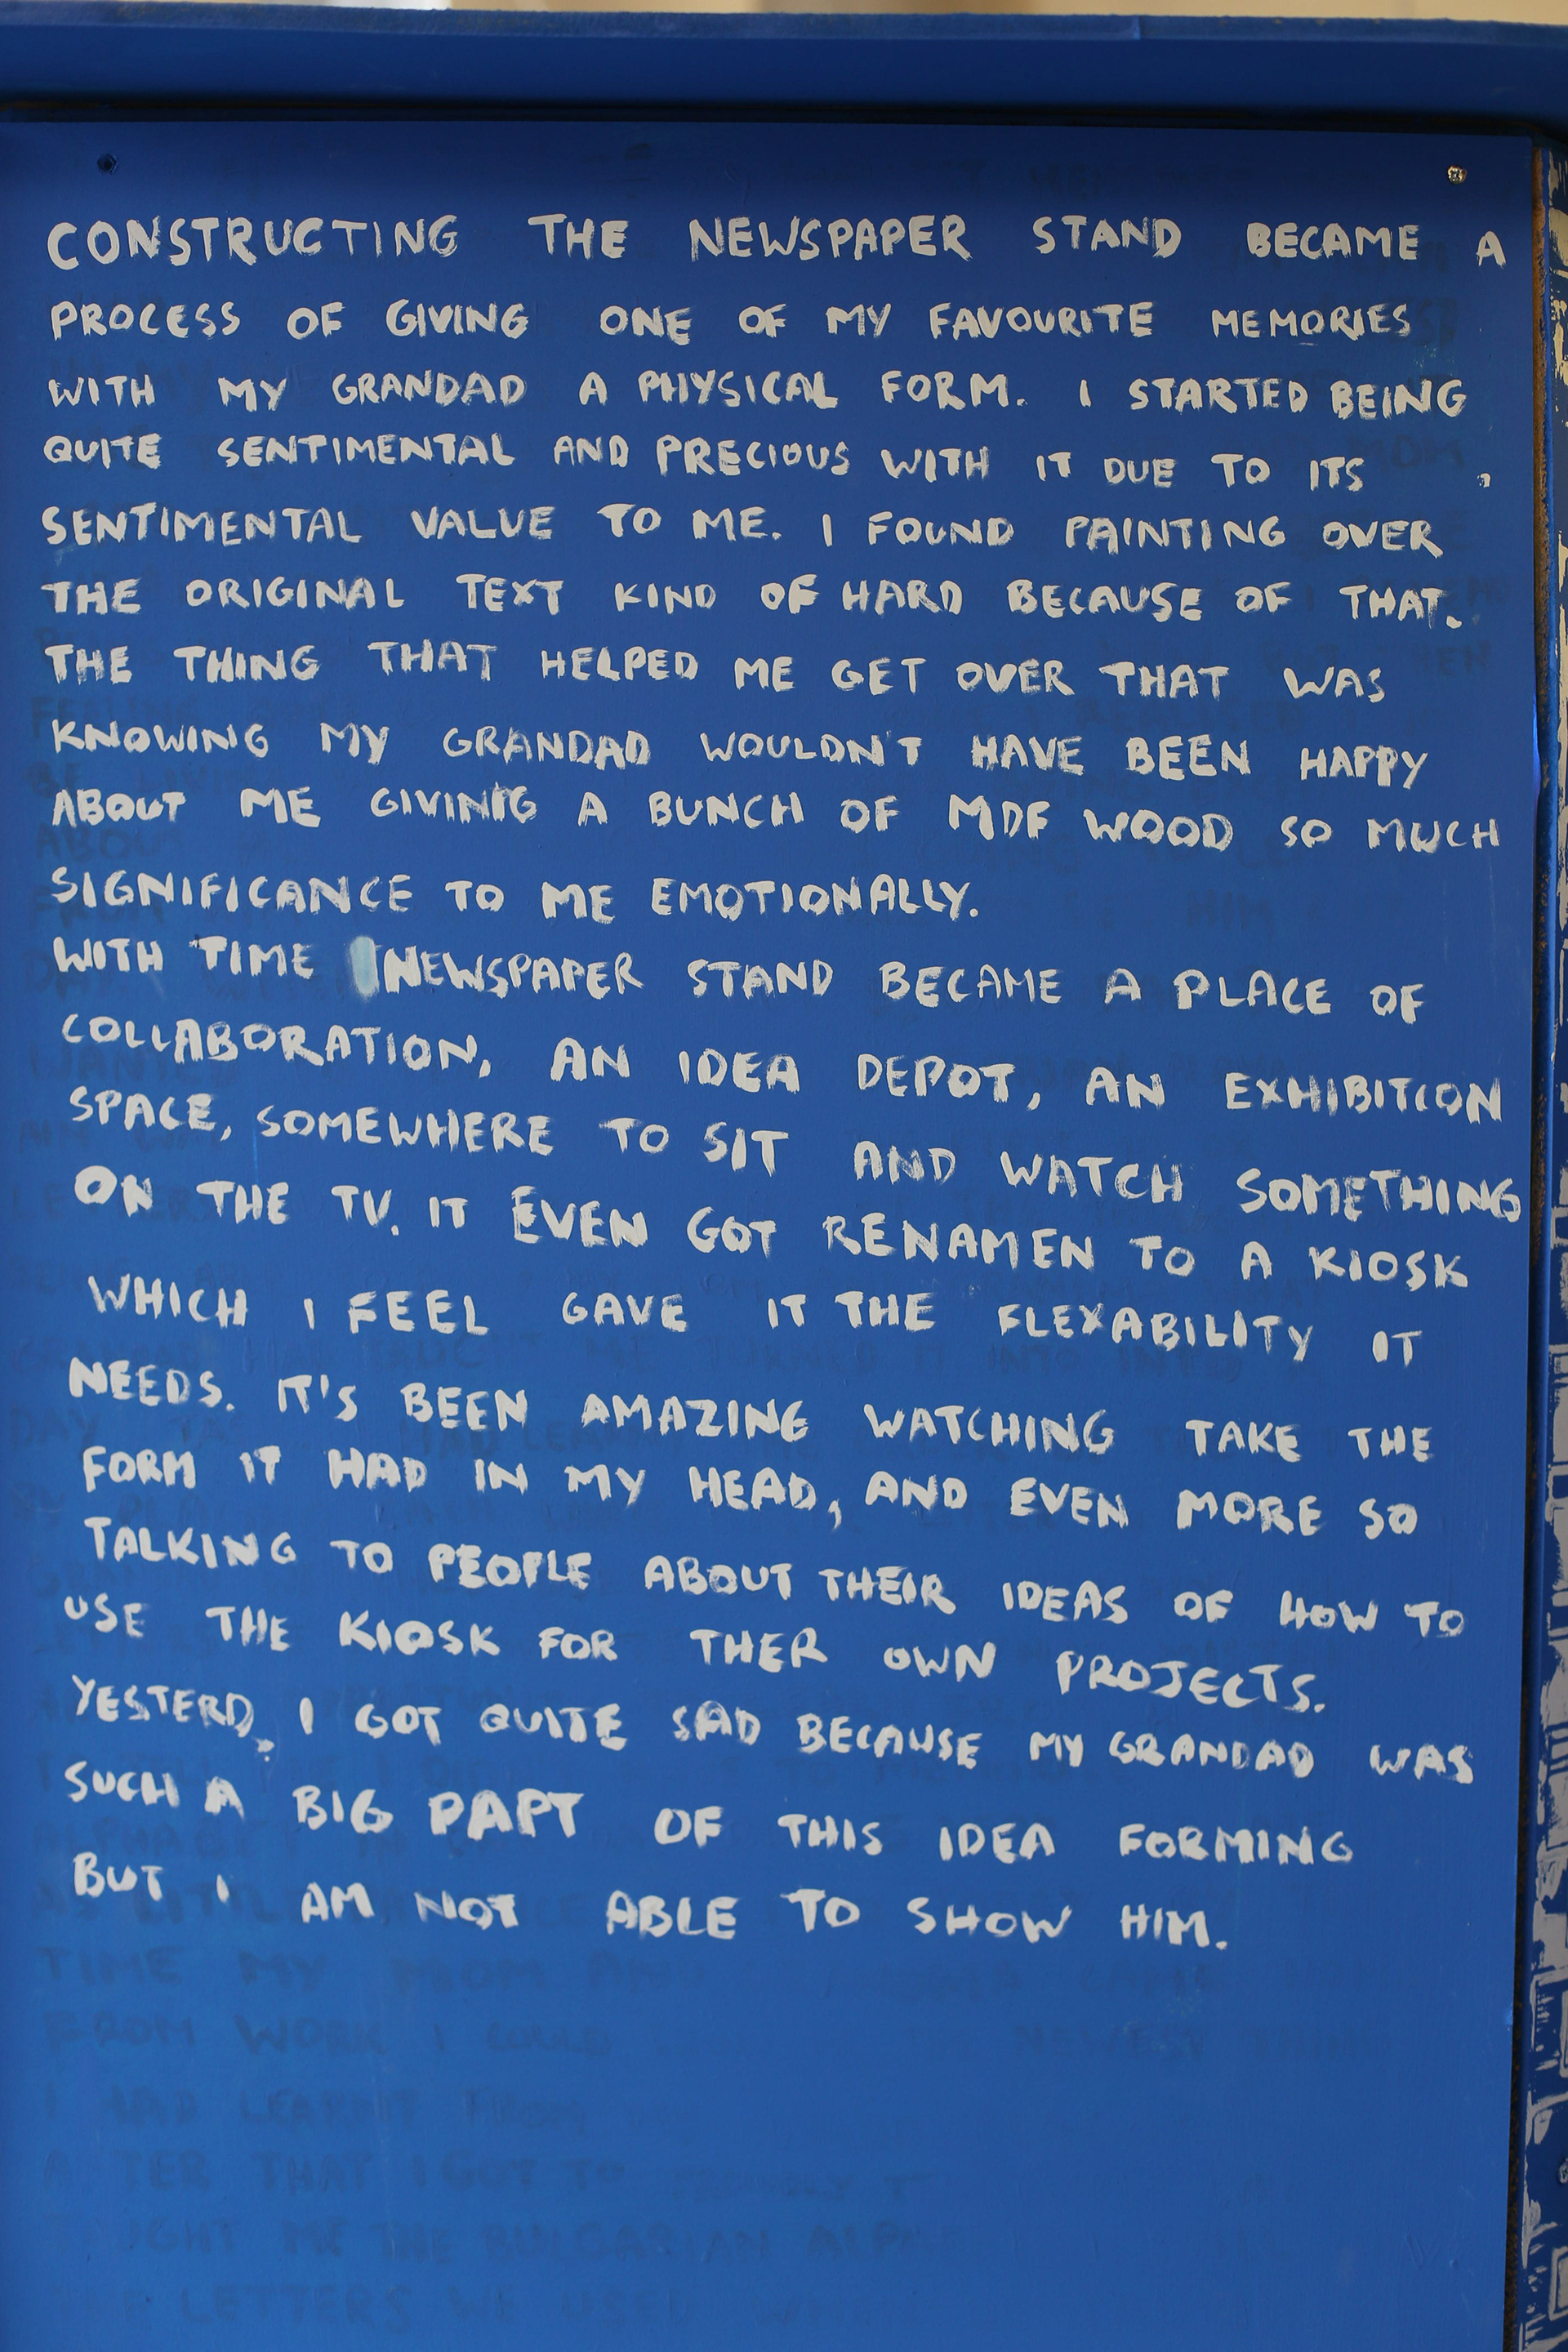 CONSTRUCTING THE NEWSPAPER STAND BECAME A
PROCESS OF GIVING ONE OF MY FAVOURITE MEMORIES
WITH MY GRANDAD A PHYSICAL FORM. I STARTED BEING
QUITE SENTIMENTAL AND PRECIOUS WITH IT DUE TO ITS
SENTIMENTAL VALUE TO ME. I FOUND PAINTING OVER
THE ORIGINAL TEXT KIND OF HARD BECAUSE OF THAT.
THE THING THAT HELPED ME GET OVER THAT WAS
KNOWING MY GRANDAD WOULDN'T HAVE BEEN HAPPY
ABOUT ME GIVING A BUNCH OF MDF WOOD SO MUCH
SIGNIFICANCE TO ME EMOTIONALLY.
WITH TIME NEWSPAPER STAND BECAME A PLACE OF
COLLABORATION, AN IDEA DEPOT, AN EXHIBITION
SPACE, SOMEWHERE TO SIT AND WATCH SOMETHING
ON THE TV. IT EVEN GOT RENAMEN TO A KIOSK
WHICH I FEEL GAVE IT THE FLEXABILITY IT
NEEDS. IT'S BEEN AMAZING WATCHING TAKE THE
FORM IT HAD IN MY HEAD, AND EVEN MORE SO
TALKING TO PEOPLE ABOUT THEIR IDEAS OF HOW TO
USE THE KIOSK FOR THER OWN PROJECTS.
YESTERD, I GOT QUITE SAD BECAUSE MY GRANDAD WAS
SUCH A BIG PAPT OF THIS IDEA FORMING
BUT I AM NOT ABLE TO SHOW HIM.
TIME MY MOM
FROM WORK I COULD NEWEST
I HAD LEARNT FROM
THAT I GOT TO
ME THE BULGARIAN
LETTERS WE USED